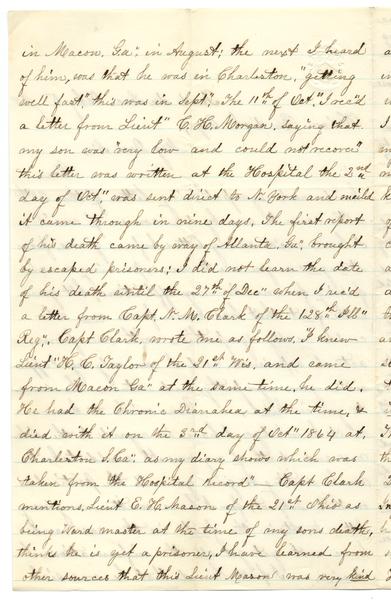 in Macon, Ga: in August; the next I heard
of him, was that he was in Charleston, "getting
well fast" this was in Sept". The 11th of Oct", I rec'd
a letter from Lieut" C. H. Morgan, saying that
my son was "very low and could not recover"
this letter was written at the Hospital the 2nd
day of Oct", was sent direct to N. York and mailed
it came through in nine days, The first report
of his death came by way of Atlanta, Ga", brought
by escaped prisoners; I did not learn the date
of his death until the 27th of Dec" when I rec'd
a letter from Capt. N. M. Clark of the 128th Ill"
Reg:, Capt Clark, wrote me as follows, "I knew
Lieut" H. C. Taylor of the 21st Wis, and came
from Macon Ga" at the same time, he did.
He had the Chronic Diarahea at the time, &
died with it on the 3rd day of Oct" 1864 at,
Charleston S. Ca" as my diary shows which was
taken from the Hospital Record" – Capt Clark
mentions, Lieut E. H. Mason of the 21st Ohio as
being Ward master at the time of my sons death,
think he is yet a prisoner, I have learned from
other sources that this Lieut Mason was very kind